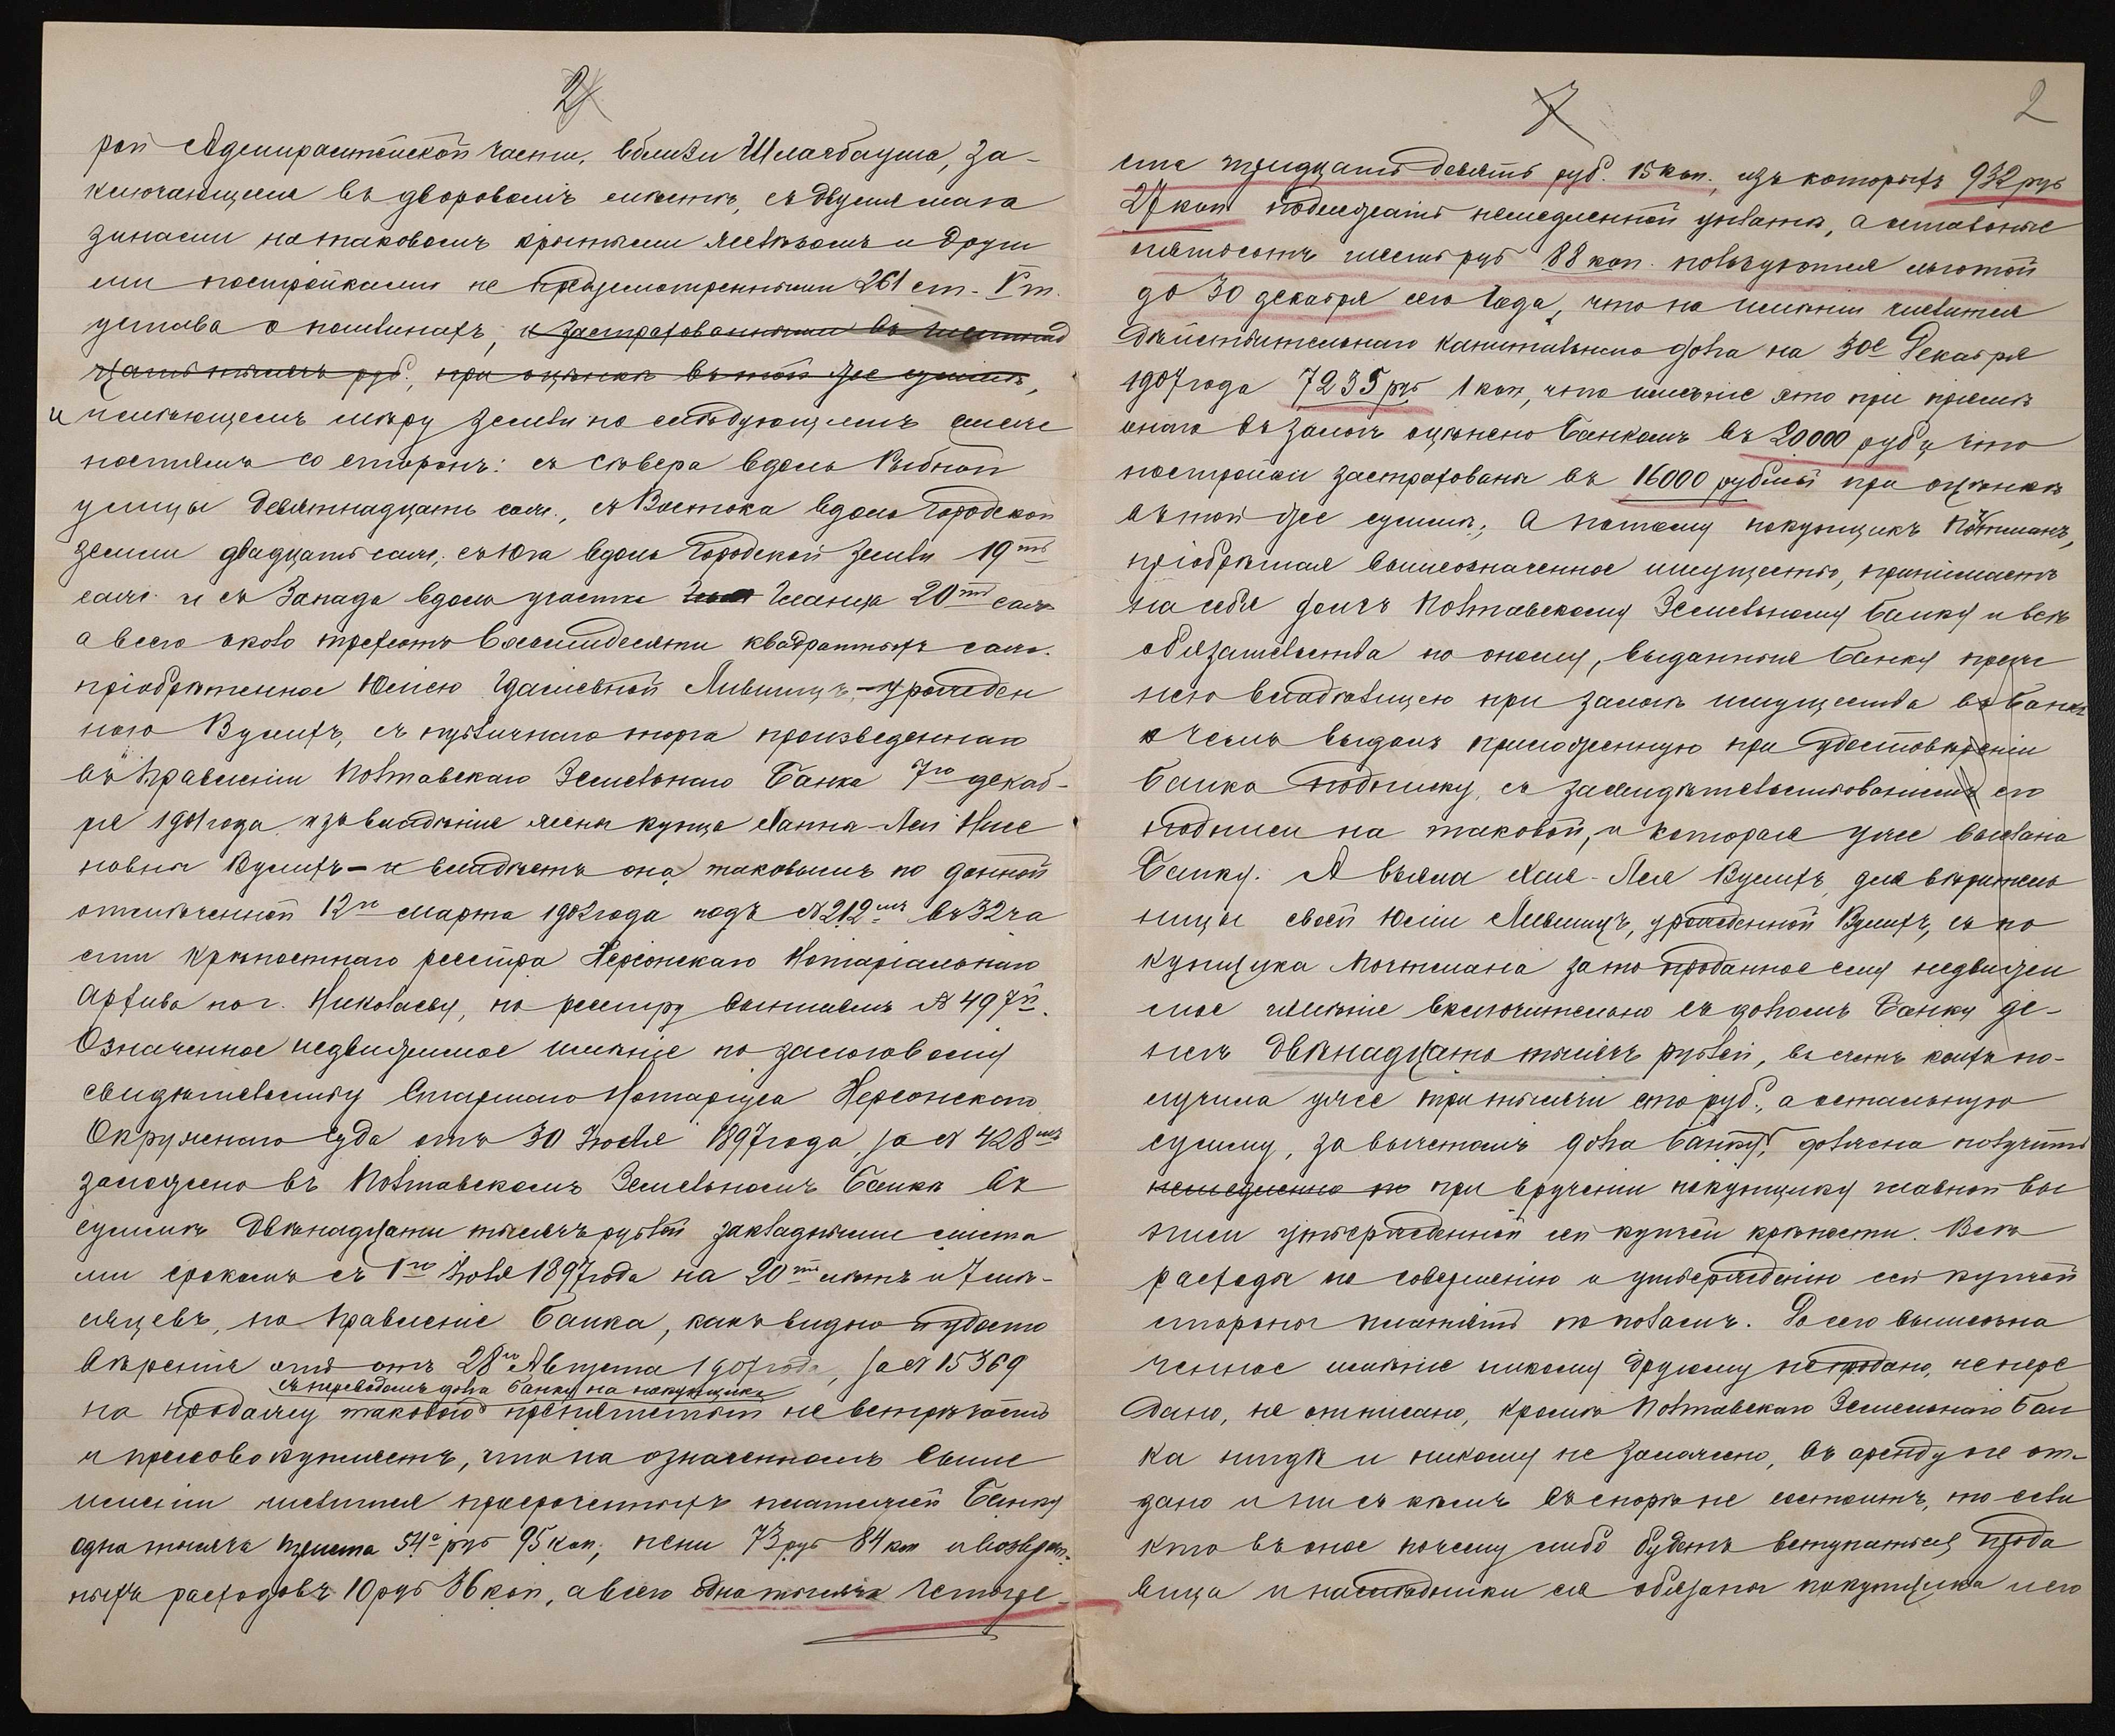 2
рой Адмиралтейской части, вблизи Шлагбаума, за-
ключающемся въ дворовомъ мѣстѣ, съ двумя мага
зинами на таковомъ крытыми желѣзомъ и други
ми постройками не предусмотренными 261 ст. V т.
устава о пошлинахъ, и застрахованными въ шестнад
цать тысячъ руб., при оцѣнкѣ въ той же суммѣ,
и имѣющемъ мѣру земли по слѣдующимъ смеж
ностямъ со сторонъ: съ Сѣвера вдоль Рыбной
улицы девятнадцать саж., съ Востока вдоль Городской
земли двадцать саж., съ Юга вдоль Городской земли 19ть
саж. и съ Запада вдоль участка Гланца 20ть саж
а всего около трехсотъ восьмидесяти квадратныхъ саж.
пріобрѣтенное Юліею Лившицъ, - урожден
ною Вульфъ, съ публичнаго торга произведеннаго
въ Правленіи Полтавскаго Земельнаго Банка 7го декаб-
ря 1901 года изъ владѣнія жены купца Ханна-Леи
Вульфъ - и владѣетъ она таковымъ по данной
отмѣченной 12го марта 1902 года подъ №212мъ въ 32 ча
сти крѣпостнаго реестра Херсонскаго Нотаріальнаго
Архива по г. Николаеву, по реестру № 497й.
Означенное недвижимое имѣніе по залоговому
свидѣтельству Старшаго Нотаріуса Херсонскаго
Окружнаго Суда отъ 30 Іюля 1897 года за № 428мъ
заложено въ Полтавскомъ Земельномъ Банкѣ въ
суммѣ двѣнадцати тысячъ рублей закладными листа
ми срокомъ съ 1го Іюля 1897 года на 20ть лѣтъ и 7 мѣ-
сяцевъ, но Правленіе Банка, какъ видно удосто
вѣренія отъ 28го Августа 1907 года, за № 15369
съ переводомъ долга Банку на покупщика
на продажу таковаго препятствій не встрѣчаетъ
и присовокупляетъ, что на означенномъ выше
имѣніи числится просроченныхъ платежей Банку
одна тысяча триста 54е руб 95 коп, пени 73 руб 84 коп и возврат-
ныхъ расходовъ 10 руб 36 коп, а всего одна тысяча четыре-
7
2
ста тридцать девять руб. 15 коп., изъ которыхъ 932 руб
27 коп подлежатъ немедленной уплатѣ, а остальные
пятьсотъ шесть руб 88 коп. пользуются льготой
до 30 декабря сего года, что на имѣніи числится
дѣйствительнаго капитальнаго долга на 30е Декабря
1907 года 7235 руб 1 коп, что имѣніе это при пріемѣ
онаго въ залогъ оцѣнено Банкомъ въ 20000 руб и что
постройки застрахованы въ 16000 рублей при оцѣнкѣ
въ той же суммѣ; а потому покупщикъ
пріобрѣтая вышеозначенное имущество, принимаетъ
на себя долгъ Полтавскому Земельному Банку и всѣ
обязательства по оному, выданныя Банку преж
нею владѣлицею при залогѣ имущества въ Банкѣ
въ чемъ выдалъ приложенную при удостовѣреніи
Банка подписку, съ засвидѣтельствованіемъ его
подписи на таковой, и которая уже выслана
Банку. А взяла Хая-Лея Вульфъ для вѣритель
ницы своей Юліи Лившицъ, урожденной Вульфъ, съ по
купщика за то проданное ему недвижи
мое имѣніе включительно съ долгомъ Банку де-
негъ двѣнадцать тысячъ рублей, въ счетъ коихъ по-
лучила уже три тысячи сто руб., а остальную
сумму, за вычетомъ долга Банку, должна получить
немедленно по при врученіи покупщику главной вы
писи утвержденной сей купчей крѣпости. Всѣ
расходы по совершенію и утвержденію сей купчей
стороны платятъ по поламъ. До сего вышеозна
ченное имѣніе никому другому не продано, не пере
дано, не отписано, кромѣ Полтавскаго Земельнаго Бан
ка нигдѣ и никому не заложено, въ аренду не от-
дано и ни съ кѣмъ въ спорѣ не состоитъ, то если
кто въ оное почему либо будетъ вступаться, прода
вица и наслѣдники ея обязаны покупщика и его